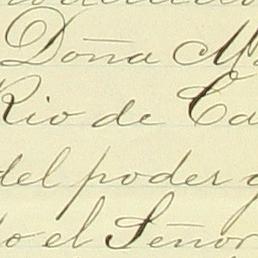 Doña M
Rio de Ca
del poder y
el Señor